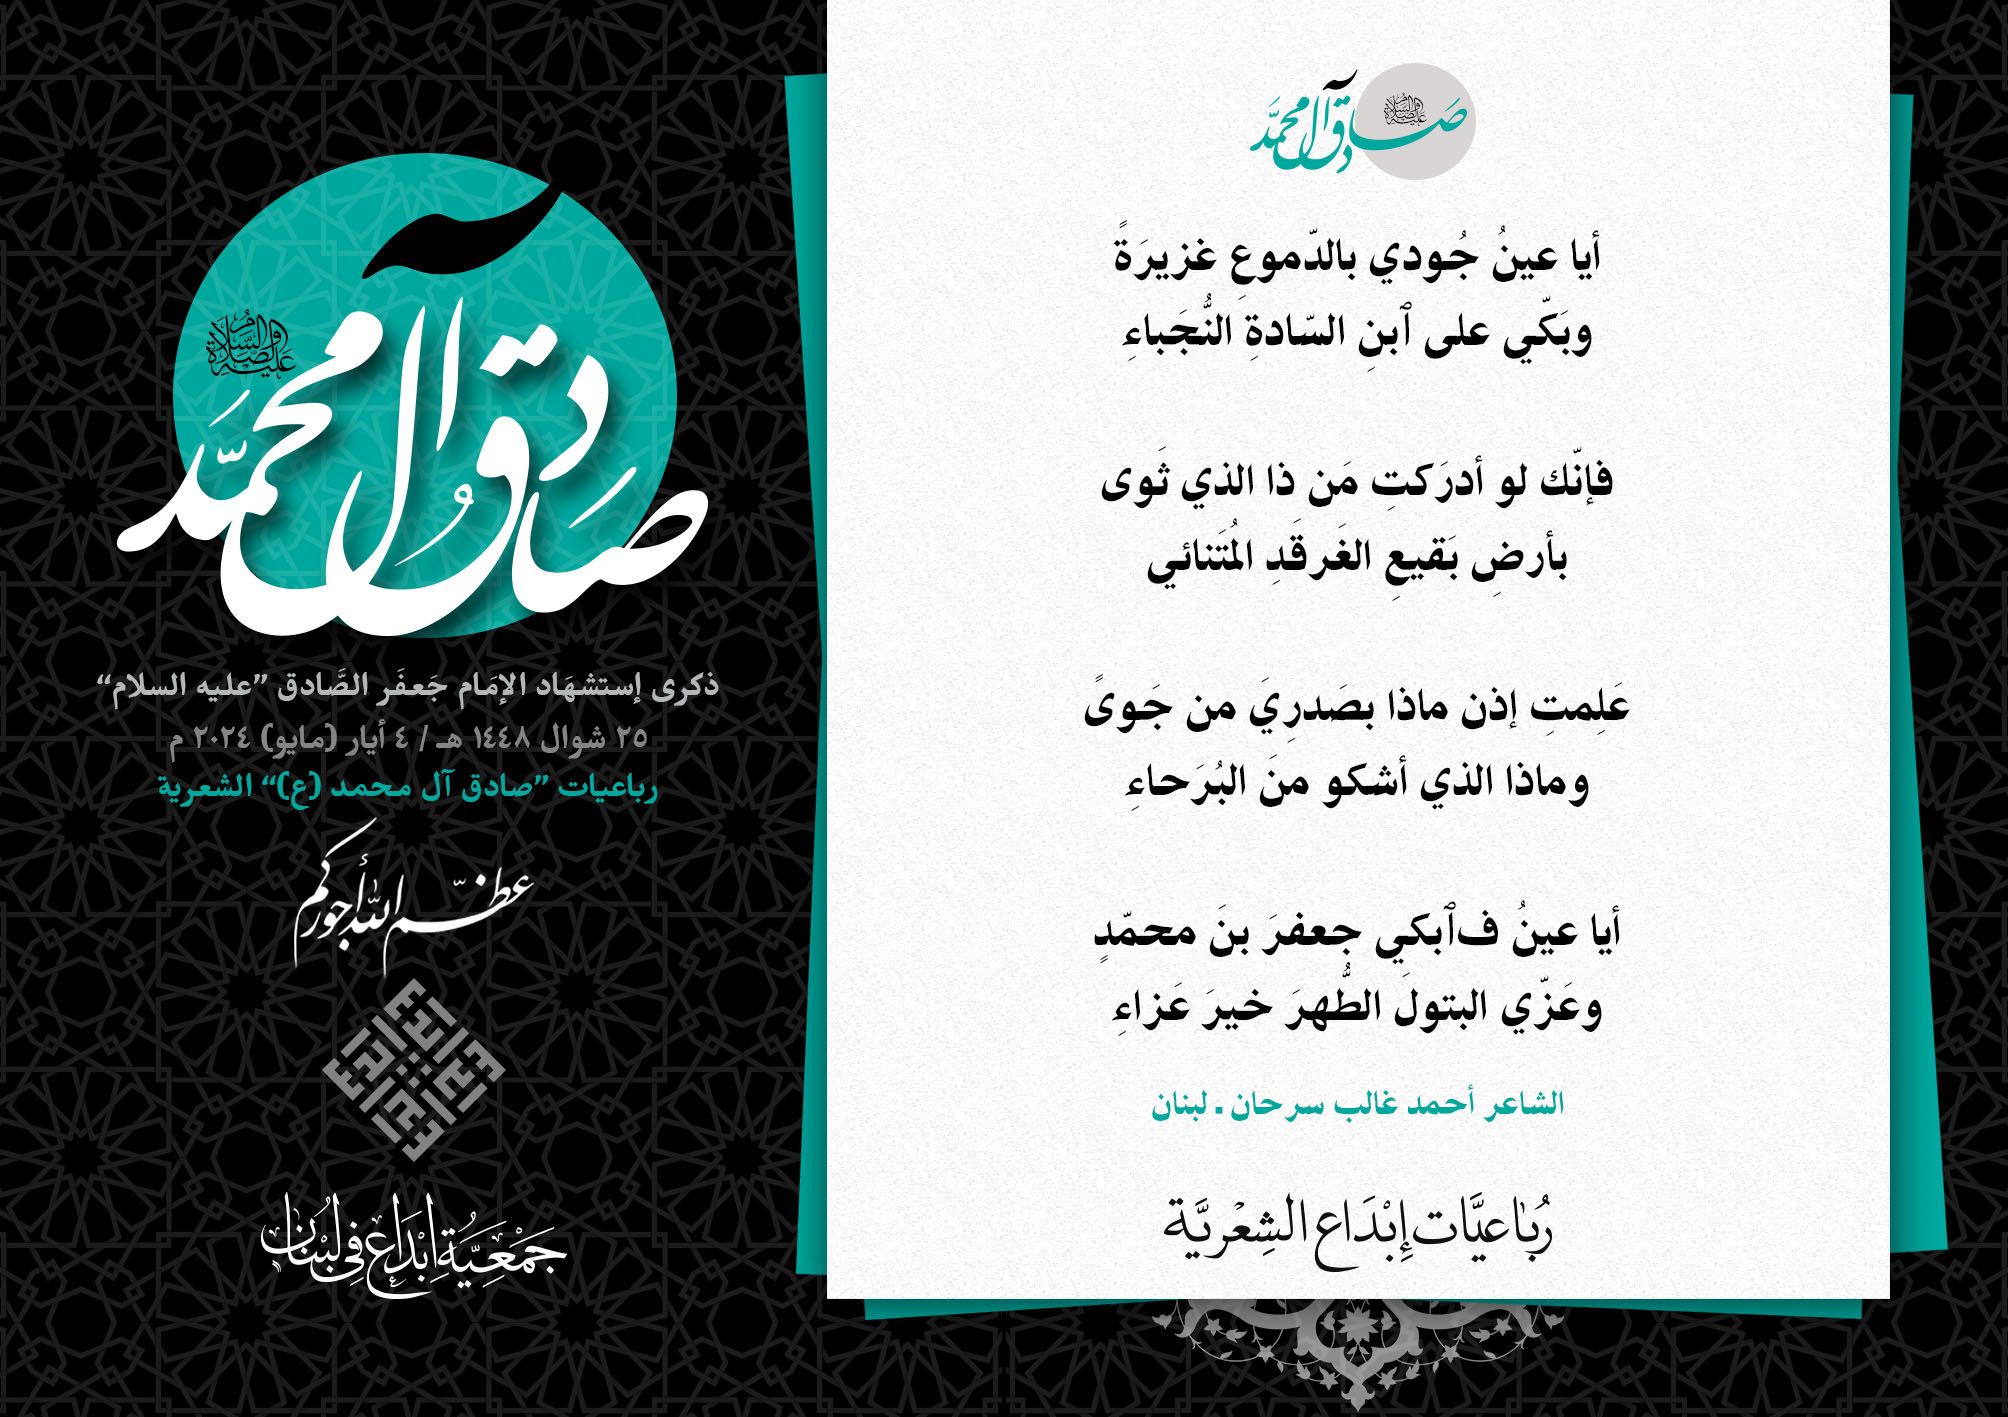 صادق آل محمد
عليه الصلاة والسلام
ذكرى إستشهَاد الإمَام جَعفَر الصَّادق ”عليه السلام“
٢٥ شوال ١٤٤٨ هـ / ٤ أيار (مايو) ٢٠٢٤ م
رباعيات ”صادق آل محمد (ع)“ الشعرية
عظّم الله أجوركم
إبداع
جَمْعِيَّةُ إِبْدَاع فِي لُبْنَان
صادق آل محمَّد
عليه الصلاة والسلام
أيا عينُ جُودي بالدّموعِ غزيرَةً
وبَكّي على ٱبنِ السّادةِ النُّجَباءِ
فإنّك لو أدرَكتِ مَن ذا الذي ثَوى
بأرضِ بَقيعِ الغَرقَدِ المُتَنائي
عَلِمتِ إذن ماذا بصَدرِيَ من جَوىً
وماذا الذي أشكو منَ البُرَحاءِ
أيا عينُ فٱبكي جعفرَ بنَ محمّدٍ
وعَزّي البتولَ الطُّهرَ خيرَ عَزاءِ
الشاعر أحمد غالب سرحان . لبنان
رُبَاعيَّات إِبْدَاع الشِعْريَّة